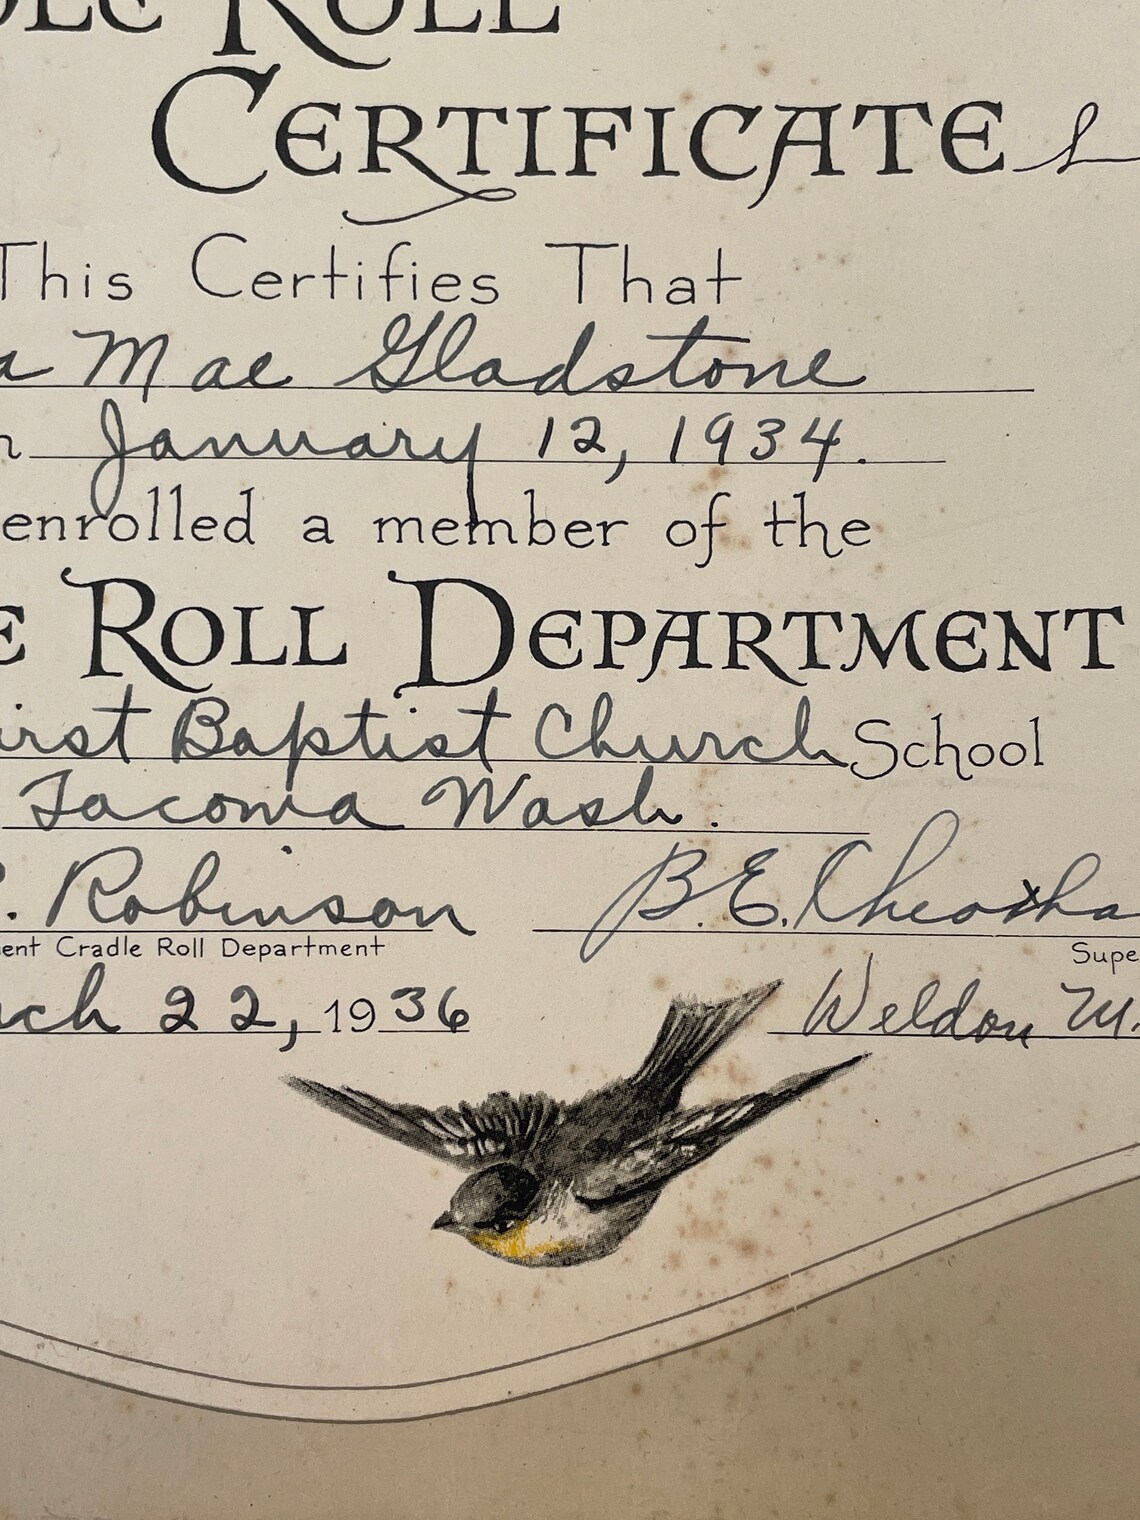 ROLL
CERTIFICATE
This Certifies That
a Mae Gladstone
n January 12, 1934.
enrolled a member of the
E ROLL DEPARTMENT
irst Baptist Church School
Tacoma Wash.
. Robinson B. E.
ent Cradle Roll Department Supe
rch 22, 1936 Weldon M.